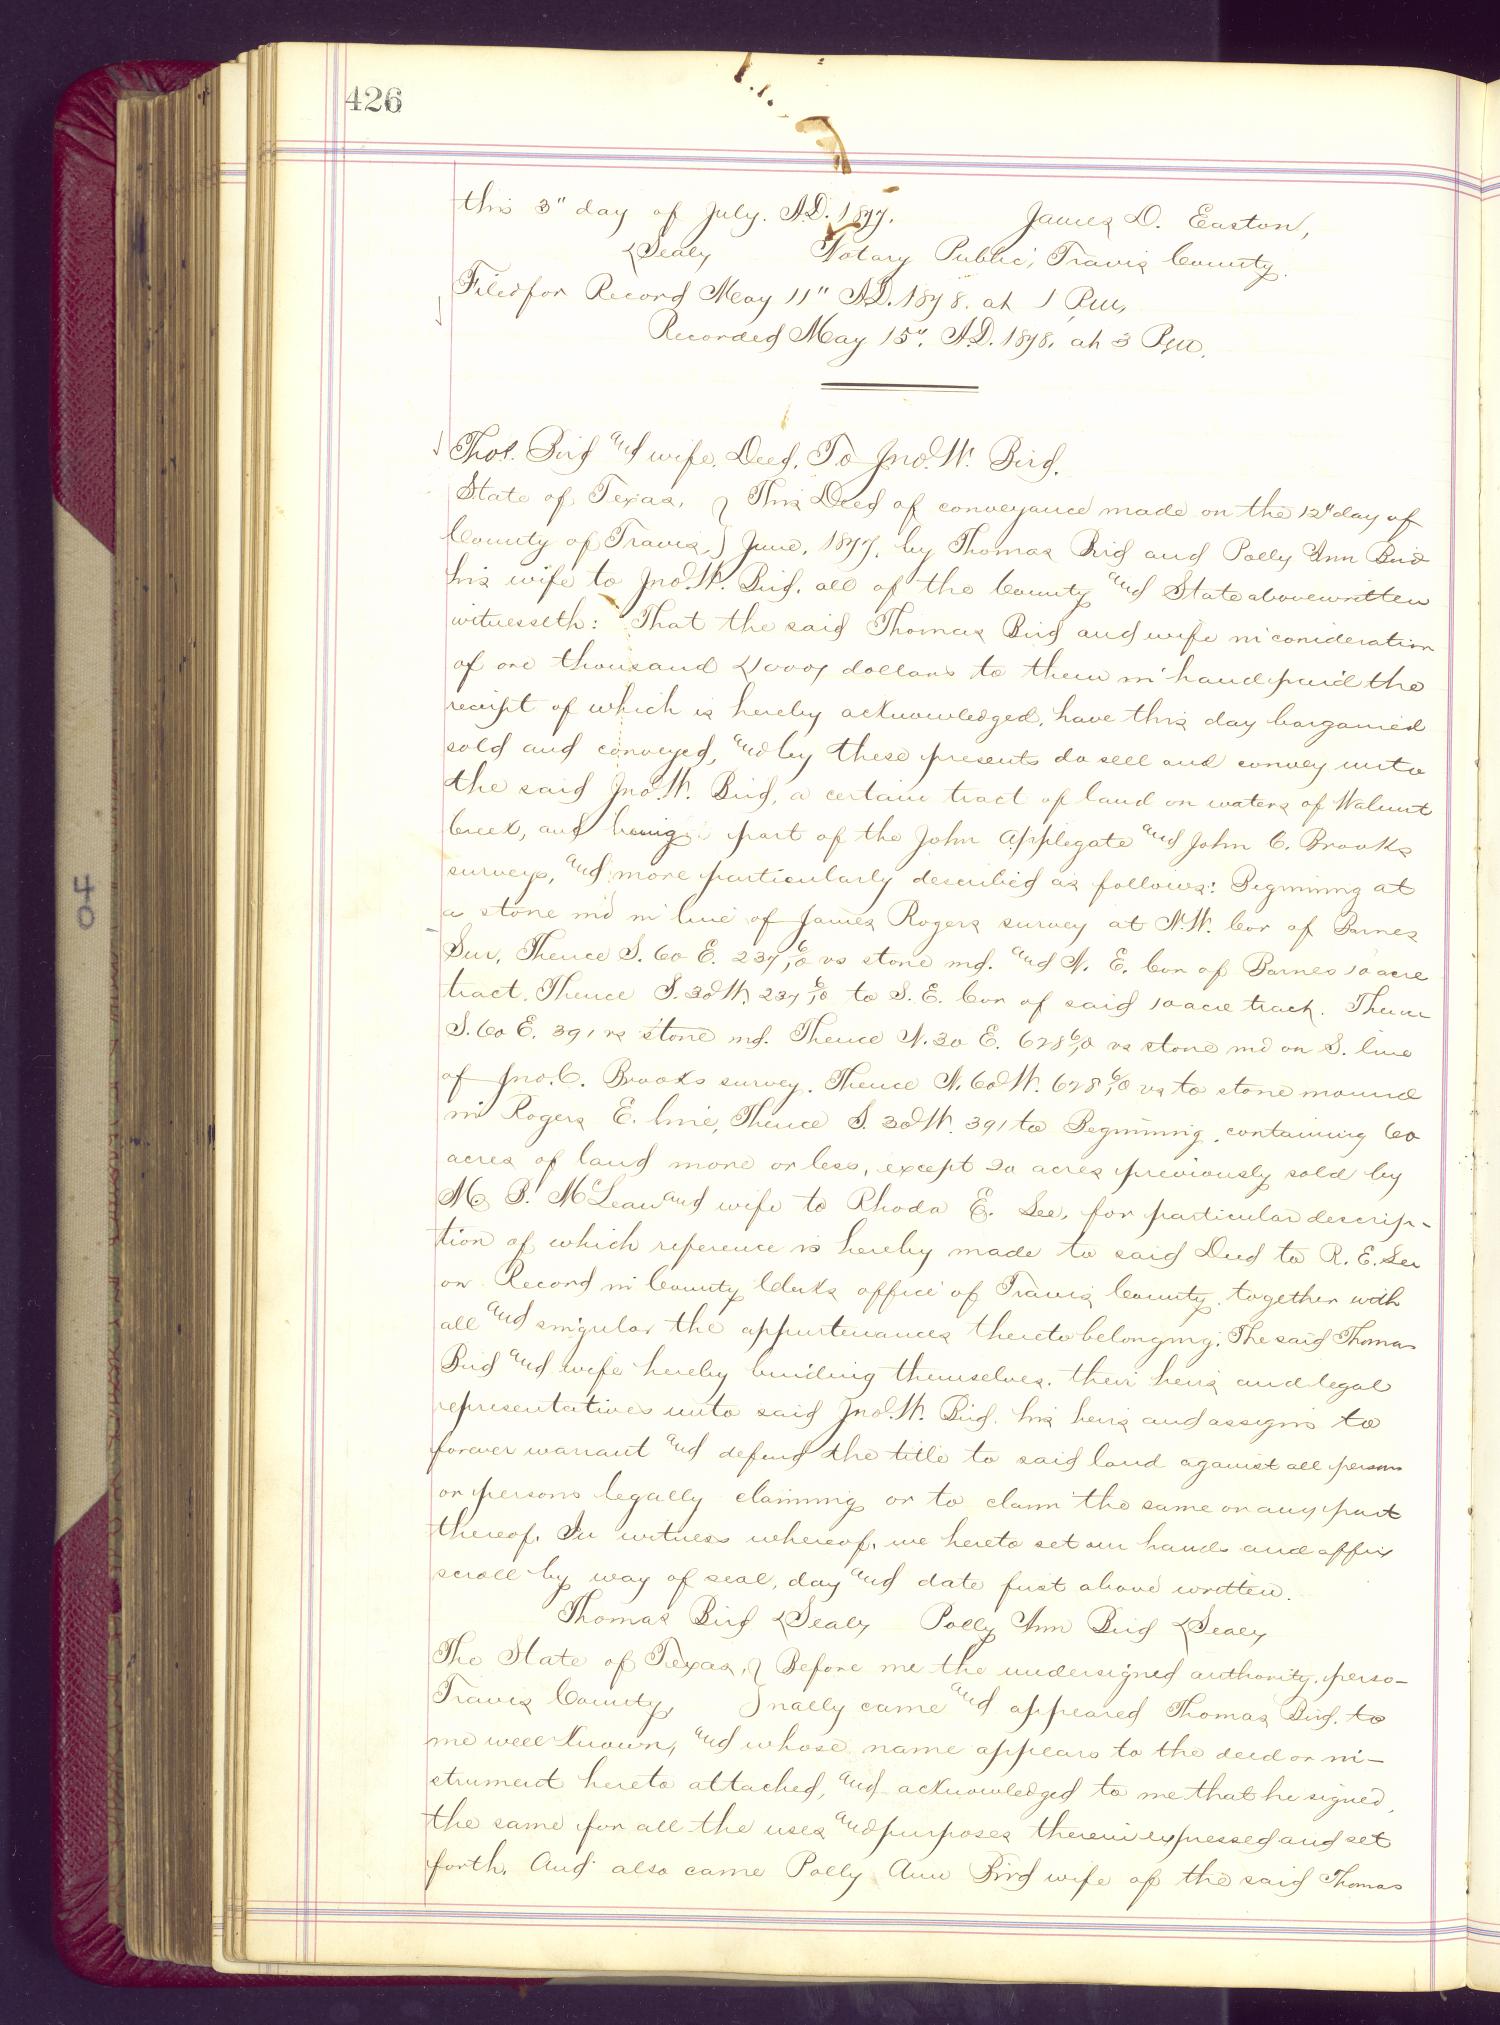 426
this 3" day of July. A.D. 1877. James D. Easton,
<Seal> Notary Public, Travis County.
Filed for Record May 11" A.D. 1878. at 1 P.M,
Recorded May 15", A.D. 1878, at 3 P.M.
Thos. Bird and wife. Deed. To Jno. W. Bird.
State of Texas, } This Deed of conveyance made on the 12" day of
County of Travis, } June, 1877, by Thomas Bird and Polly Ann Bird
his wife to Jno. W. Bird, all of the County and State abovewritten
witnesseth: That the said Thomas Bird and wife in conideration
of one thousand <1000> dollars to them in hand paid the
receipt of which is hereby acknowledged, have this day bargained
sold and conveyed, and by these presents do sell and convey unto
the said Jno. W. Bird, a certain tract of land on waters of Walnut
Creek, and being part of the John Applegate and John C. Brooks
surveys, and more particularly described as follows: Beginning at
a stone md in line of James Rogers survey at N.W. Cor of Barnes
Sur, Thence S. 60 E. 237 6/10 vs stone md. and N. E. Cor of Barnes 10 acre
tract. Thence S. 30 W. 237 6/10 to S. E. Cor of said 10 acre tract. Thence
S. 60 E. 391 vs stone md. Thence N. 30 E. 628 6/10 vs stone md on S. line
of Jno. C. Brooks survey. Thence N. 60 W. 628 6/10 vs to stone mound
in Rogers E. line, Thence S. 30 W. 391 to Beginning, containing 60
acres of land more or less, except 20 acres previously sold by
M. P. McLean and wife to Rhoda E. Lee, for particular descrip-
tion of which reference is hereby made to said Deed to R. E. Lee
on Record in County Clerks office of Travis County, together with
all and singular the appurtenances thereto belonging. The said Thomas
Bird and wife hereby binding themselves, their heirs and legal
representatives unto said Jno. W. Bird, his heirs and assigns to
forever warrant and defend the title to said land against all person
or persons legally claiming or to claim the same or any part
thereof. In witness whereof, we hereto set our hands and affix
scroll by way of seal, day and date first above written.
Thomas Bird <Seal> Polly Ann Bird <Seal>
The State of Texas, } Before me the undersigned authority, perso-
Travis County, } nally came and appeared Thomas Bird, to
me well known, and whose name appears to the deed or in-
strument hereto attached, and acknowledged to me that he signed,
the same for all the uses and purposes therein expressed and set
forth. And also came Polly Ann Bird wife of the said Thomas
40